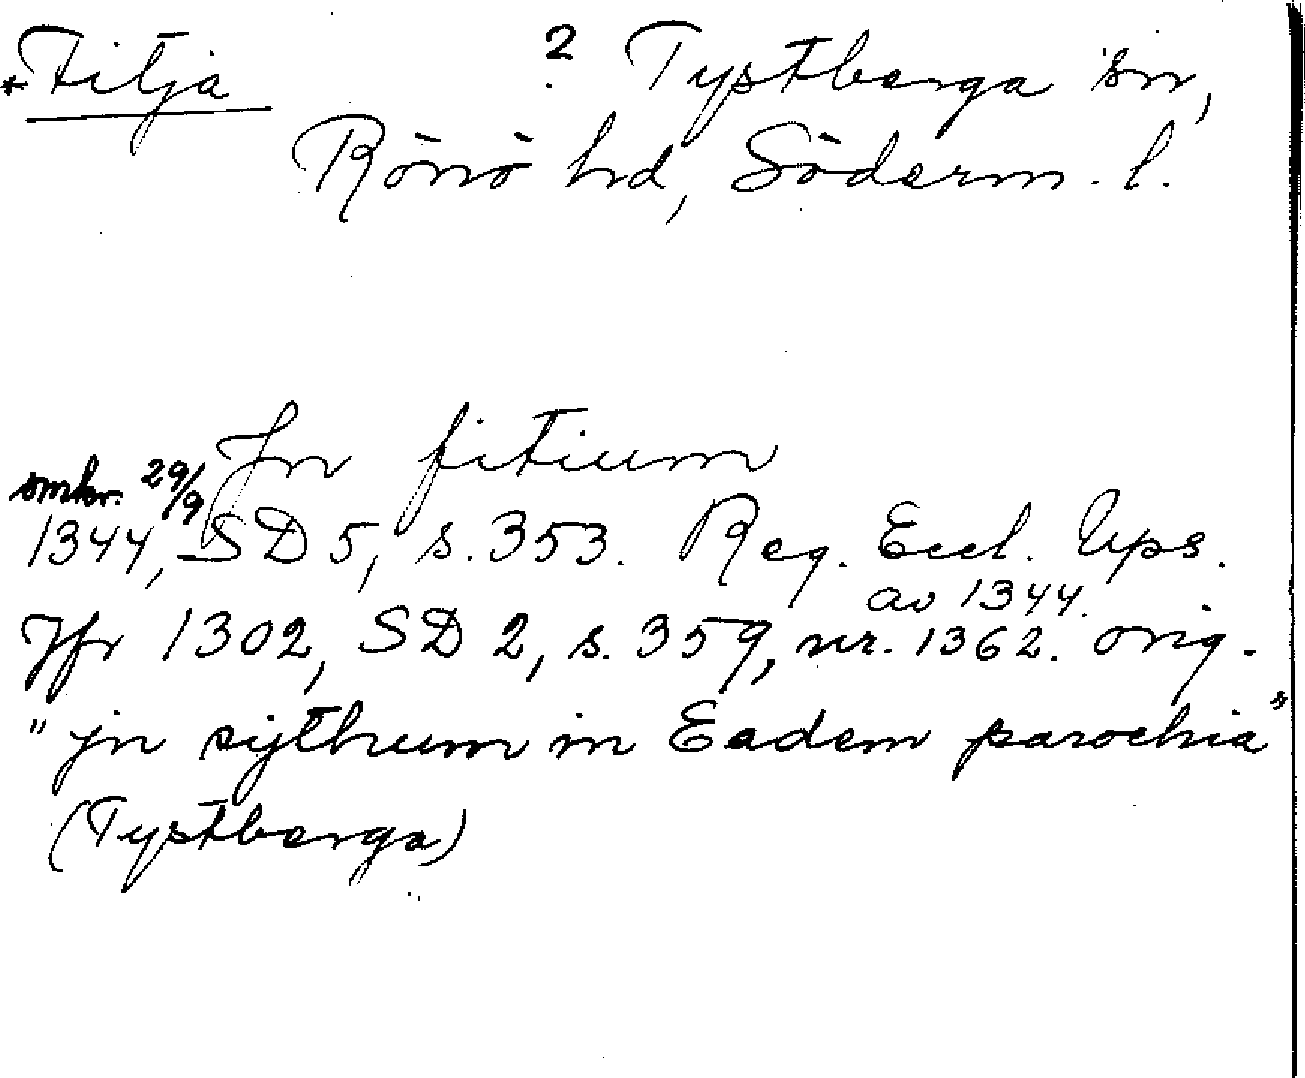 *Fitja ? Tystberga sn,
Rönö hd, Söderm. l.
Jn fitium
omkr. 29/9
1344, SD 5, s. 353. Reg. Eccl. Ups.
av 1344.
Jfr 1302, SD 2, s. 359, nr. 1362. orig.
"jn sijthum in Eadem parochia"
(Tystberga)